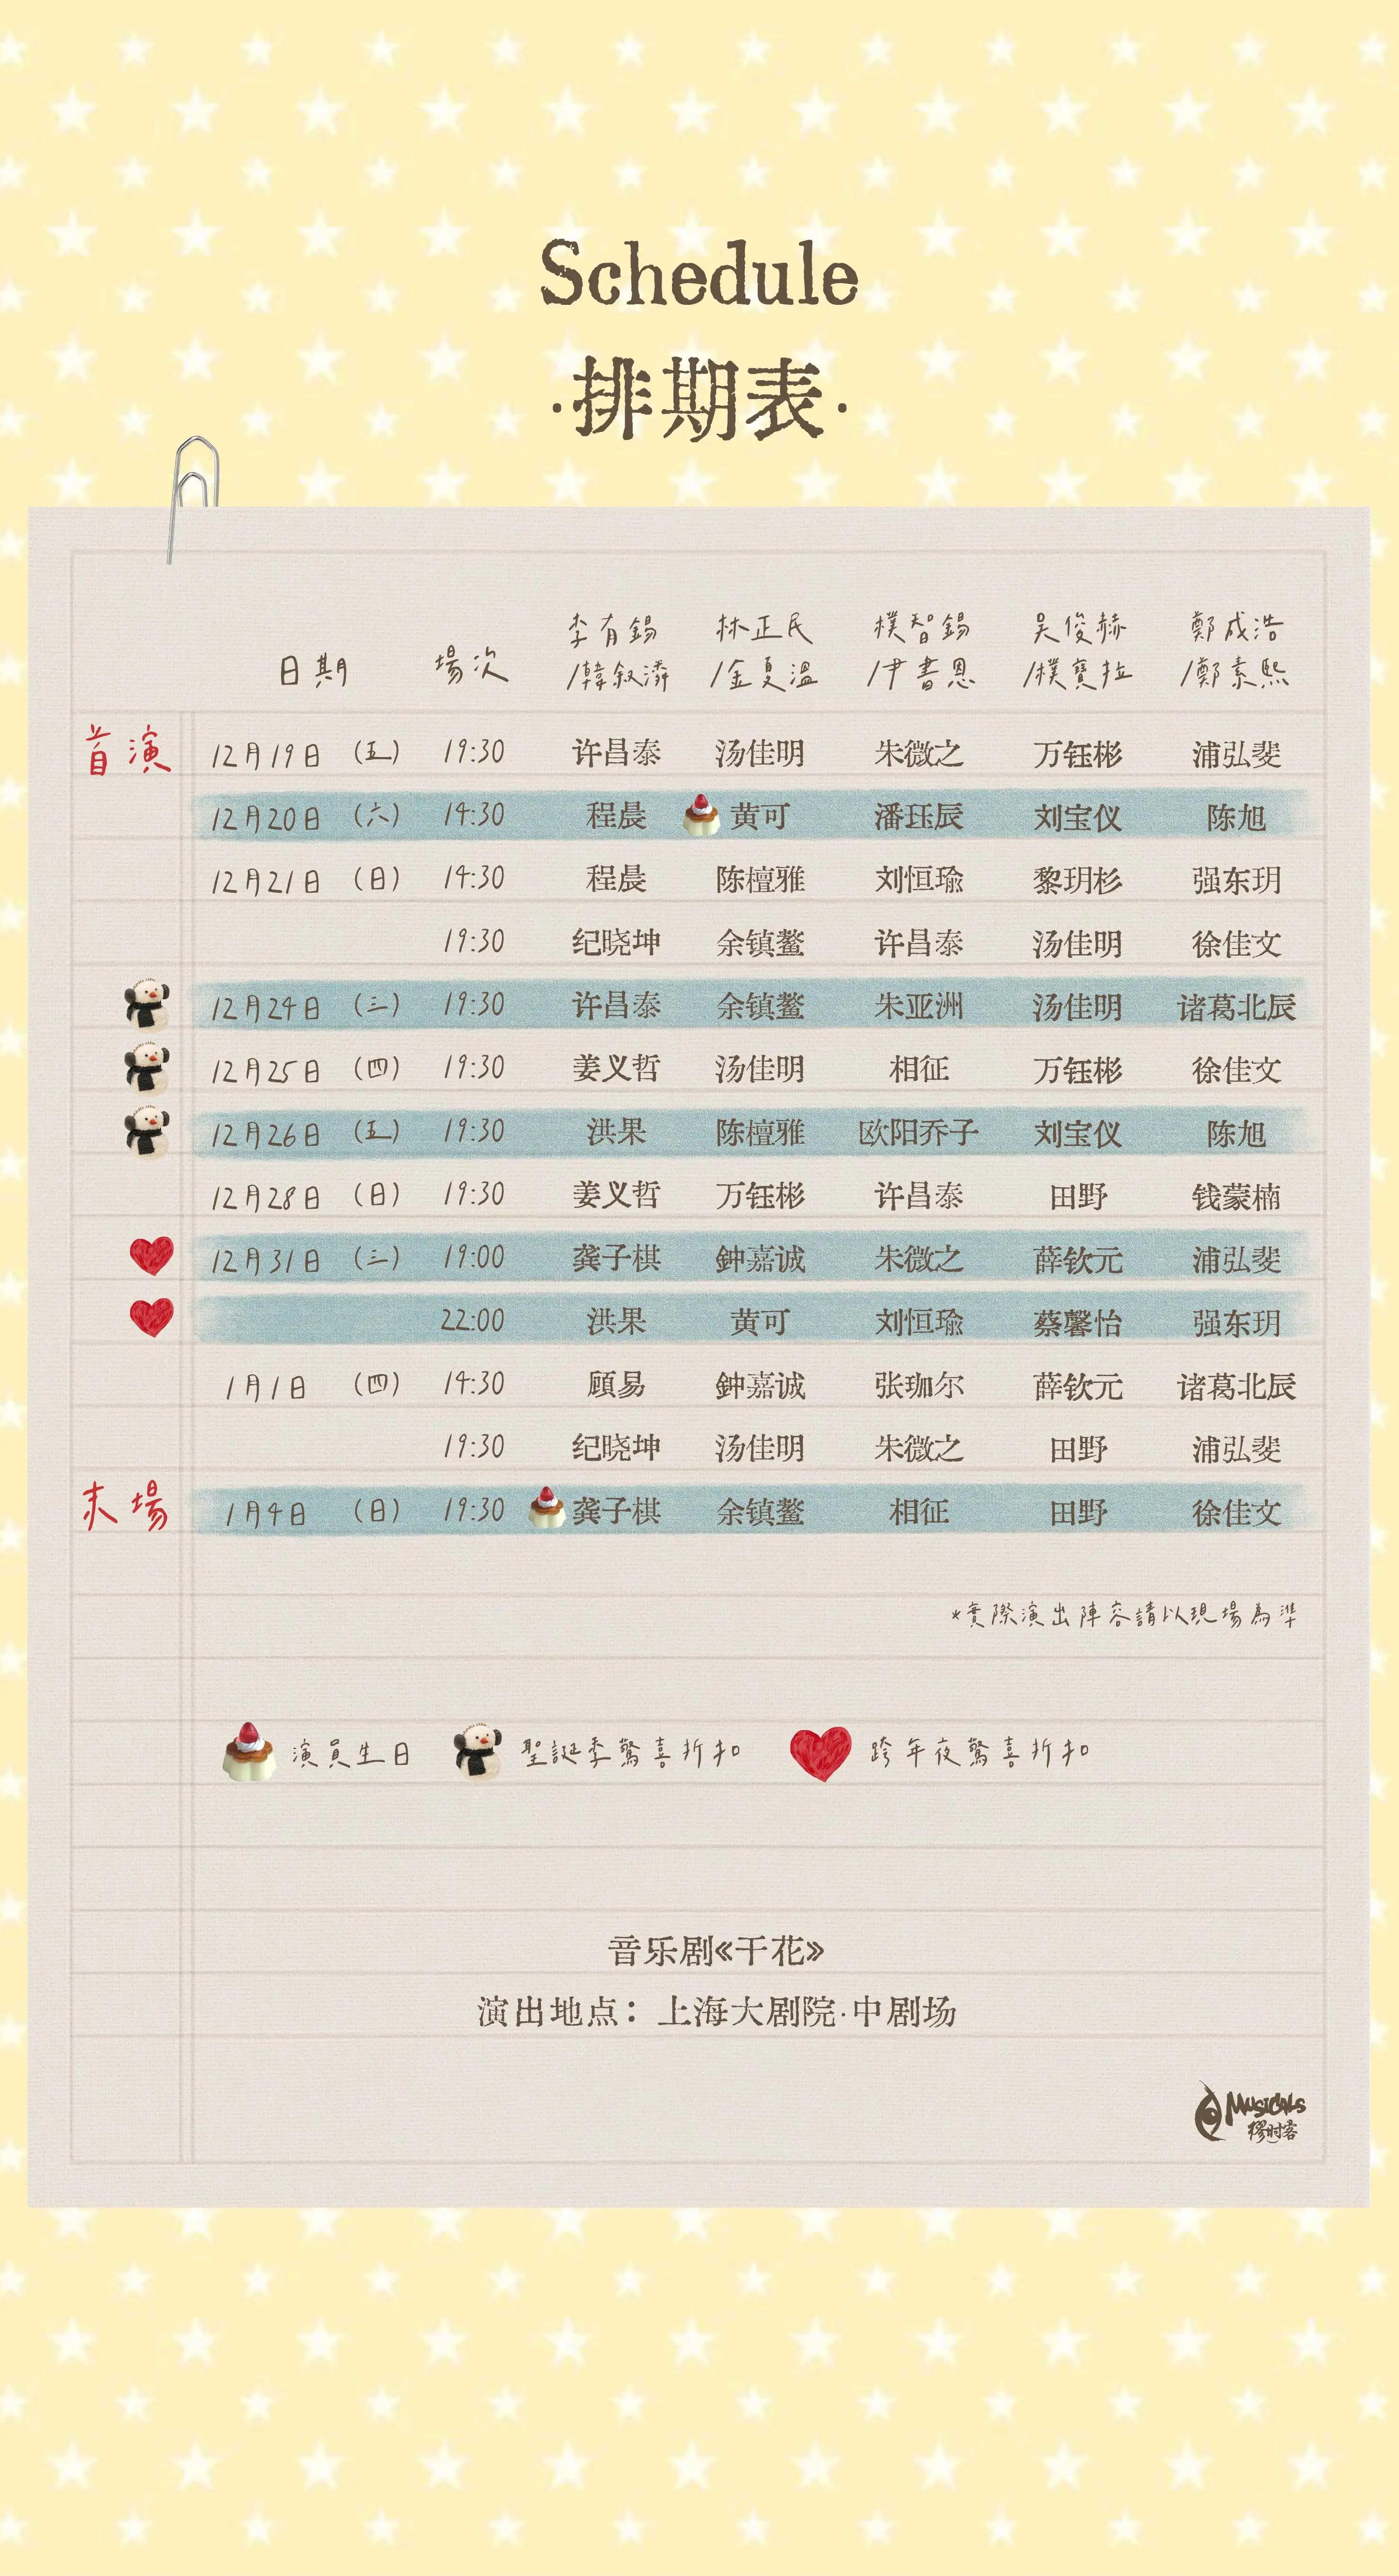 Schedule
·排期表·
日期 場次 李有錫/韓敘潾 林正民/金夏溫 樸智錫/尹書恩 吴俊赫/樸寶拉 鄭成浩/鄭素熙
首演 12月19日 (五) 19:30 许昌泰 汤佳明 朱微之 万钰彬 浦弘斐
12月20日 (六) 14:30 程晨 黄可 潘珏辰 刘宝仪 陈旭
12月21日 (日) 14:30 程晨 陈檀雅 刘恒瑜 黎玥杉 强东玥
19:30 纪晓坤 余镇鳌 许昌泰 汤佳明 徐佳文
12月24日 (三) 19:30 许昌泰 余镇鳌 朱亚洲 汤佳明 诸葛北辰
12月25日 (四) 19:30 姜义哲 汤佳明 相征 万钰彬 徐佳文
12月26日 (五) 19:30 洪果 陈檀雅 欧阳乔子 刘宝仪 陈旭
12月28日 (日) 19:30 姜义哲 万钰彬 许昌泰 田野 钱蒙楠
12月31日 (三) 19:00 龚子棋 鈡嘉诚 朱微之 薛钦元 浦弘斐
22:00 洪果 黄可 刘恒瑜 蔡馨怡 强东玥
1月1日 (四) 14:30 顧易 鈡嘉诚 张珈尔 薛钦元 诸葛北辰
19:30 纪晓坤 汤佳明 朱微之 田野 浦弘斐
末場 1月4日 (日) 19:30 龚子棋 余镇鳌 相征 田野 徐佳文
*實際演出陣容請以現場為準
演員生日 聖誕季驚喜折扣 跨年夜驚喜折扣
音乐剧《干花》
演出地点：上海大剧院·中剧场
MUSICALS
缪时客